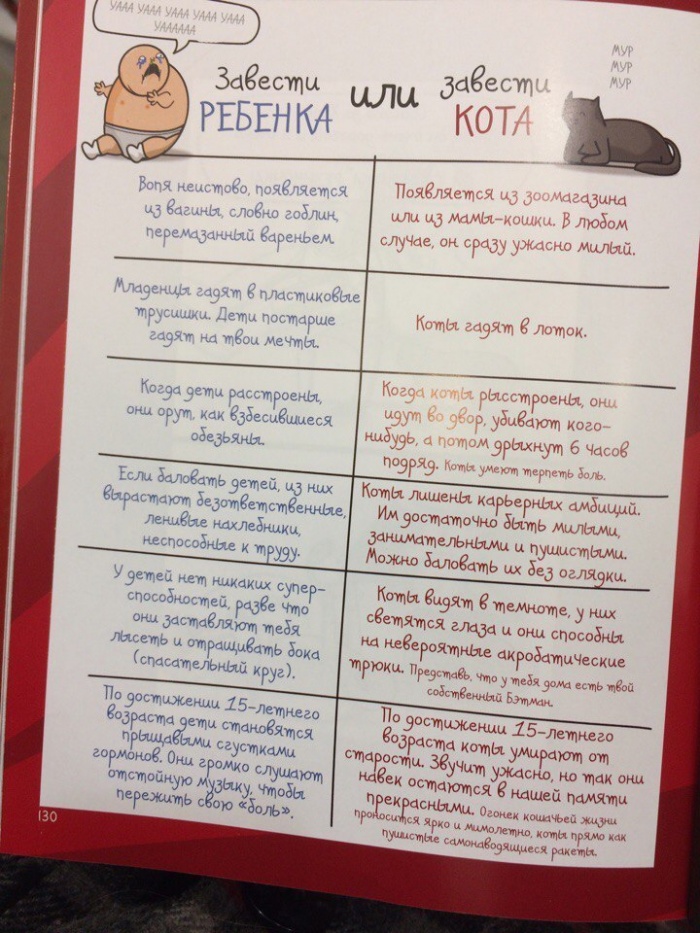 УААА УААА УААА УААА УААА
УАААААА
МУР
МУР
МУР
Завести
РЕБЕНКА
или
завести
КОТА
Вопя неистово, появляется
из вагины, словно гоблин,
перемазанный вареньем.
Появляется из зоомагазина
или из мамы-кошки. В любом
случае, он сразу ужасно милый.
Младенцы гадят в пластиковые
трусишки. Дети постарше
гадят на твои мечты.
Коты гадят в лоток.
Когда дети расстроены,
они орут, как взбесившиеся
обезьяны.
Когда коты рысстроены, они
идут во двор, убивают кого-
нибудь, а потом дрыхнут 6 часов
подряд. Коты умеют терпеть боль.
Если баловать детей, из них
вырастают безответственные,
ленивые нахлебники,
неспособные к труду.
Коты лишены карьерных амбиций.
Им достаточно быть милыми,
занимательными и пушистыми.
Можно баловать их без оглядки.
У детей нет никаких супер-
способностей, разве что
они заставляют тебя
лысеть и отращивать бока
(спасательный круг).
Коты видят в темноте, у них
светятся глаза и они способны
на невероятные акробатические
трюки. Представь, что у тебя дома есть твой
собственный Бэтман.
По достижении 15-летнего
возраста дети становятся
прыщавыми сгустками
гормонов. Они громко слушают
отстойную музыку, чтобы
пережить свою «боль».
По достижении 15-летнего
возраста коты умирают от
старости. Звучит ужасно, но так они
навек остаются в нашей памяти
прекрасными. Огонек кошачьей жизни
проносится ярко и мимолетно, коты прямо как
пушистые самонаводящиеся ракеты.
130